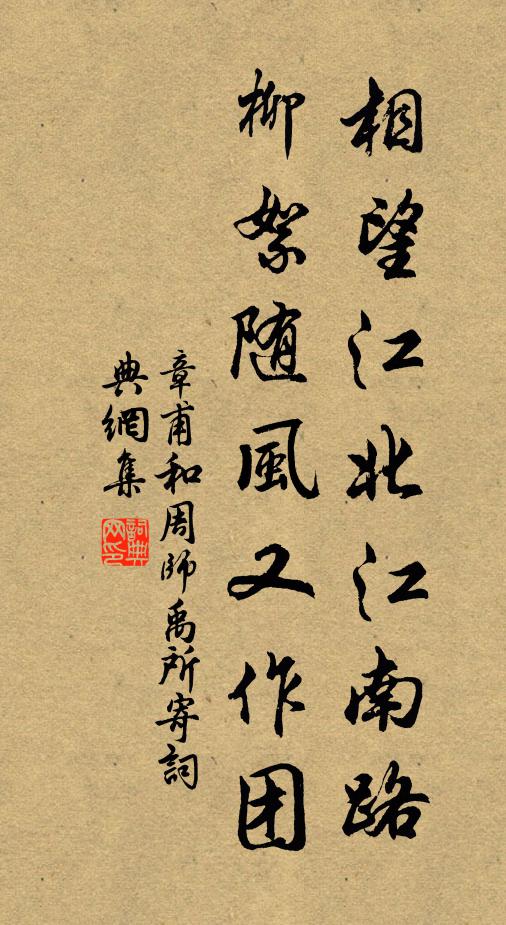 相望江北江南路
柳絮随風又作团
章甫和周師禹所寄詞
典網集
詞典网印